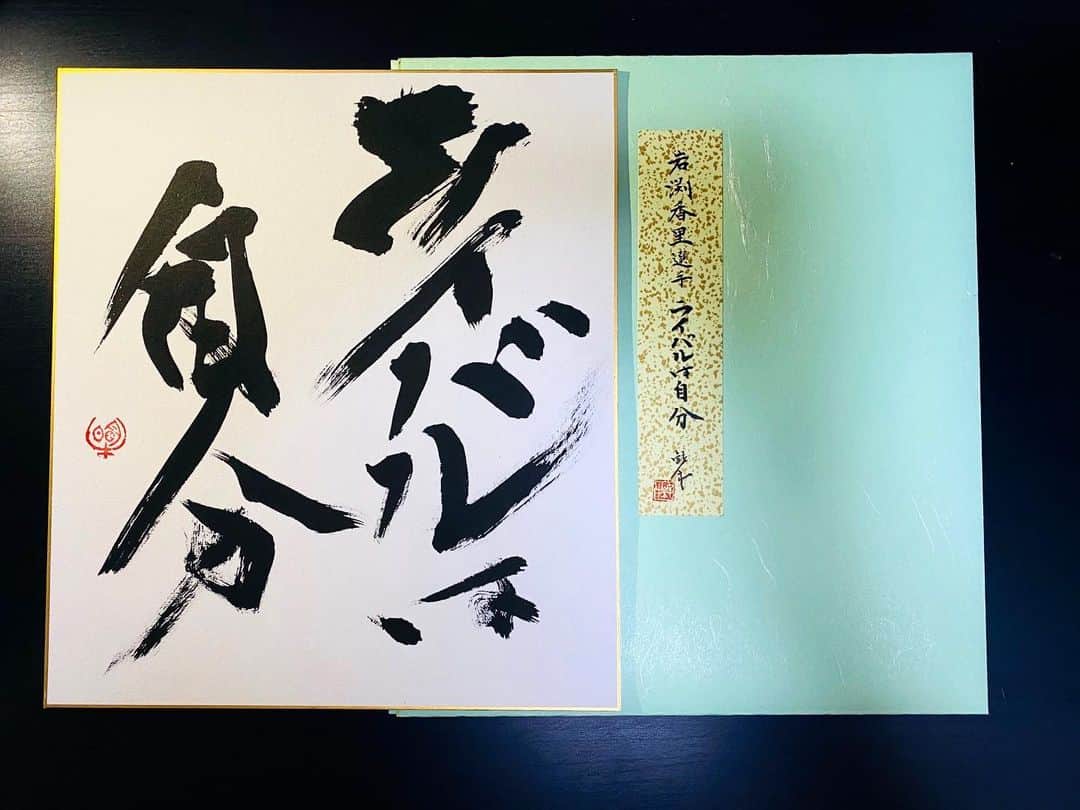 ライバルは
自分
岩渕香里選手 ライバルは自分